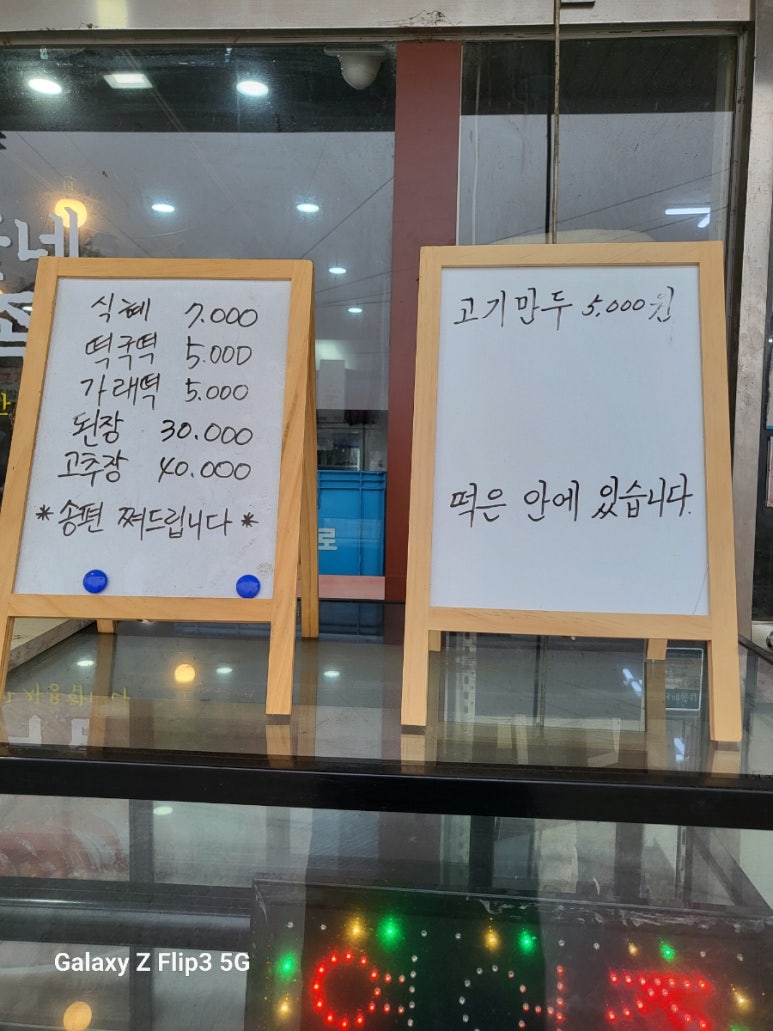 식혜 7.000
떡국떡 5.000
가래떡 5.000
된장 30.000
고추장 40.000
*송편 쪄드립니다*
고기만두 5,000원
떡은 안에 있습니다.
로
Galaxy Z Flip3 5G